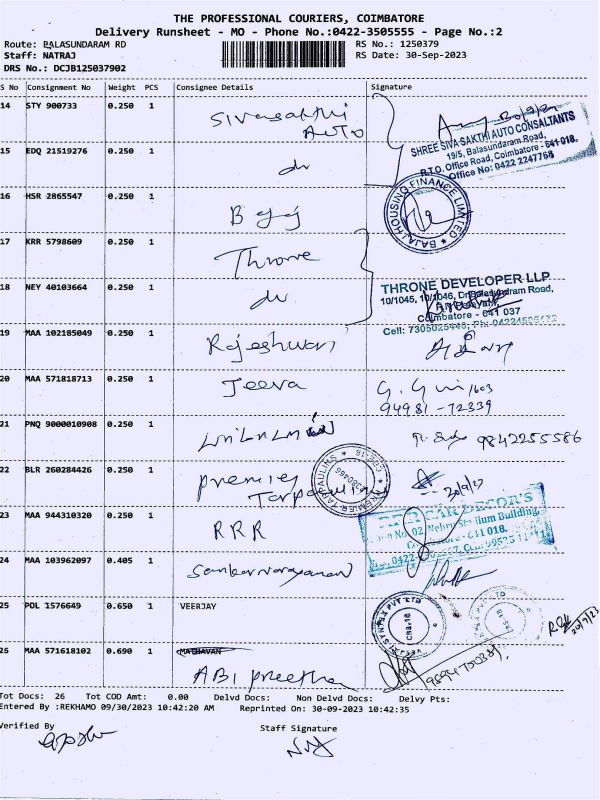 THE PROFESSIONAL COURIERS, COIMBATORE
Delivery Runsheet - MO - Phone No.:0422-3505555 - Page No.:2
Route: BALASUNDARAM RD
Staff: NATRAJ
DRS No.: DCJB125037902
RS No.: 1250379
RS Date: 30-Sep-2023
S No Consignment No Weight PCS Consignee Details Signature
14 STY 900733 0.250 1 Sivasakthi
AUTO
SHREE SIVA SAKTHI AUTO CONSULTANTS
19/5, Balasundaram Road,
R.T.O. Office Road, Coimbatore - 641 018.
Office No: 0422 2247768
15 EDQ 21519276 0.250 1 do
16 HSR 2865547 0.250 1 Bajaj
BAJAJ HOUSING FINANCE LIMITED
17 KRR 5798609 0.250 1 Throne
18 NEY 40103664 0.250 1 do
THRONE DEVELOPER LLP
10/1045, 10/1046, Dr. Balasundram Road,
Coimbatore - 641 037
Cell: 7305025448, Ph:
19 MAA 102185049 0.250 1 Rajeshwari
20 MAA 571818713 0.250 1 Jeeva
94981-72339
21 PNQ 9000010908 0.250 1
9842255586
22 BLR 260284426 0.250 1 Premier
Tarpaulins
30/9/23
23 MAA 944310320 0.250 1 RRR
CAR DECOR'S
No. 02, Nehru Stadium Building,
24 MAA 103962097 0.405 1 Sankarnarayanan
25 POL 1576649 0.650 1 VEERJAY
26 MAA 571618102 0.690 1 MADHAVAN
ABI Preetha
Tot Docs: 26 Tot COD Amt: 0.00 Delvd Docs: Non Delvd Docs: Delvy Pts:
Entered By :REKHAMO 09/30/2023 10:42:20 AM Reprinted On: 30-09-2023 10:42:35
Verified By
Staff Signature